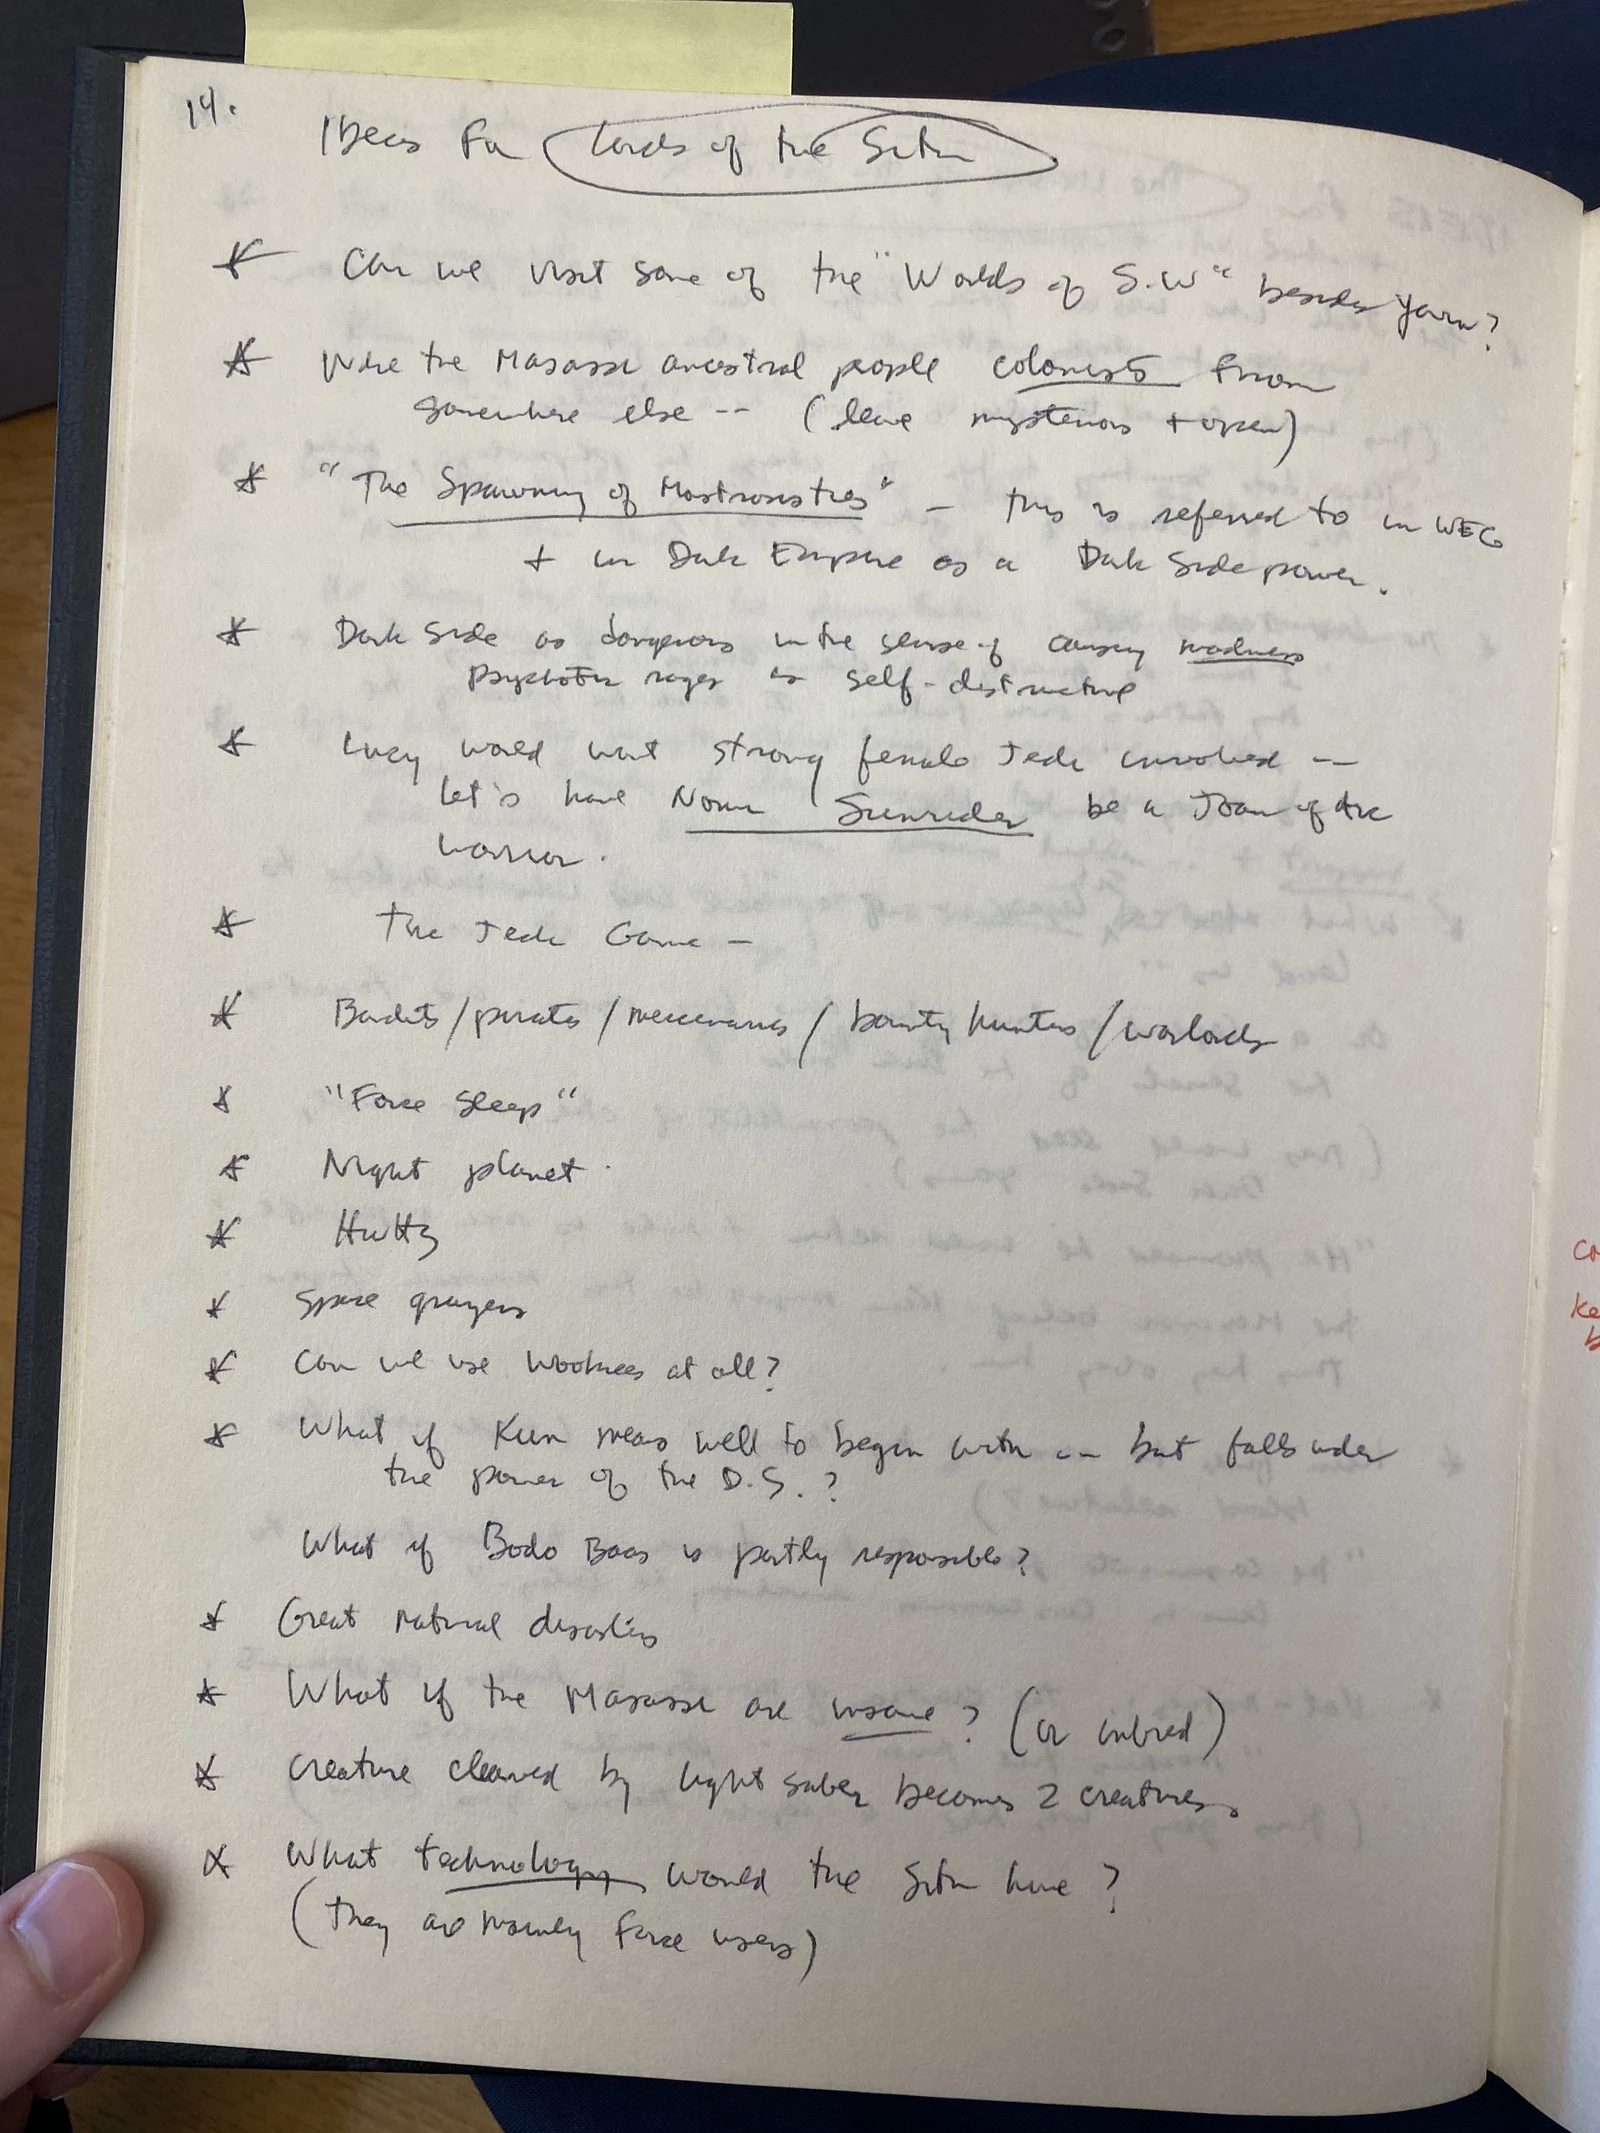 14.
Ideas for Lords of the Sith
* Can we visit some of the "Worlds of S.W" besides Yavin?
* Were the Massassi ancestral people colonists from
somewhere else -- (leave mysterious + open)
* "The Spawning of Monstrosities" - this is referred to in WEG
+ in Dark Empire as a Dark Side power.
* Dark Side as dangerous in the sense of causing madness
psychotic rages is self-destructive
* Lucy would want strong female Jedi involved --
let's have Nomi Sunrider be a Joan of Arc
warrior.
* The Jedi Game -
* Bandits/pirates/mercenaries/bounty hunters/warlords
* "Force Sleep"
* Night planet.
* Hutts
* Space grazers
* Can we use Wookiees at all?
* What if Kun means well to begin with -- but falls under
the power of the D.S.?
What if Bodo Baas is partly responsible?
* Great natural disasters
* What if the Massassi are insane? (or inbred)
* Creature cleaved by light saber becomes 2 creatures
* What technology would the Sith have?
(they are mainly Force users)